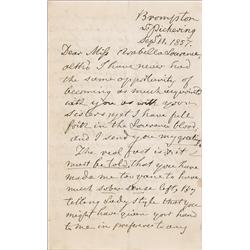 Brompton
Pickering
Sep. 11. 1857.
Dear Miss Arabella Lowrance,
altho I have never had
the same opportunity of
becoming as much acquainted
with you as with your
sisters yet I have full
faith in the Lowrance blood
and I send you my
The real fact is if it
must be told, that you have
made me too vain to have
much sober sense left by
telling Lady style that you
might have given your hand
to me in preference to any